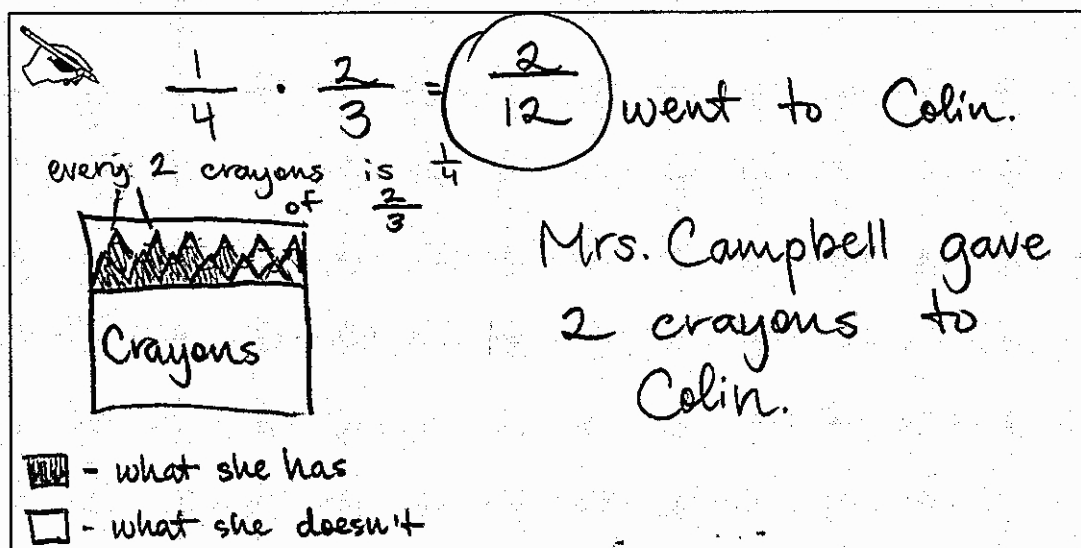 1/4 · 2/3 = 2/12 went to Colin.
every 2 crayons is 1/4
of 2/3
Mrs. Campbell gave
2 crayons to
Colin.
Crayons
- what she has
- what she doesn't